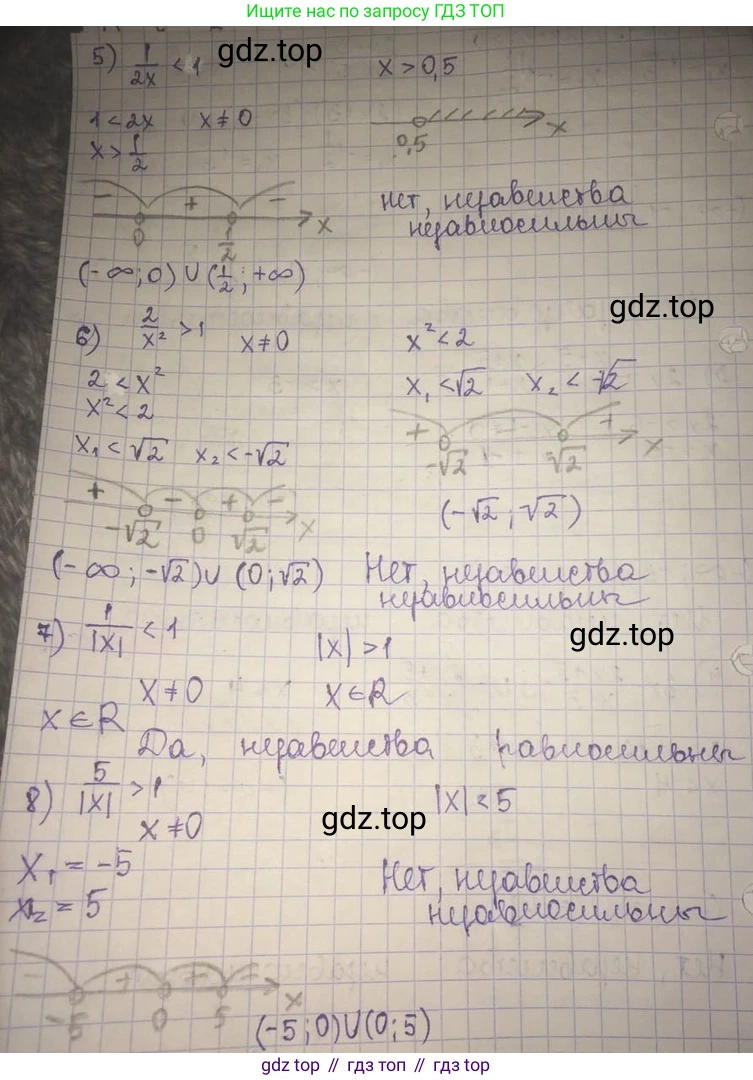 Ищите нас по запросу ГДЗ ТОП
5) 1/2x < 1
gdz.top
x > 0,5
1 < 2x x ≠ 0
x > 1/2
0,5 x
- + -
0 1/2 x
нет, неравенства
неравносильны
(-∞; 0) ∪ (1/2; +∞)
gdz.top
6) 2/x² > 1 x ≠ 0
x² < 2
2 < x²
x² < 2
x₁ < √2 x₂ < -√2
x₁ < √2 x₂ < -√2
+ - +
-√2 √2 x
+ - + -
-√2 0 √2 x
(-√2; √2)
(-∞; -√2) ∪ (0; √2)
Нет, неравенства
неравносильны
7) 1/|x| < 1
|x| > 1
gdz.top
x ≠ 0
x ∈ R
x ∈ R
Да, неравенства равносильны
8) 5/|x| > 1
|x| < 5
x ≠ 0
gdz.top
x₁ = -5
x₂ = 5
Нет, неравенства
неравносильны
- + + -
-5 0 5 x
(-5; 0) ∪ (0; 5)
gdz top // гдз топ // gdz.top